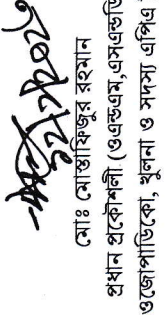 ২১/১২/২০২৩
মোঃ মোস্তাফিজুর রহমান
প্রধান প্রকৌশলী (ওএন্ডএম,এসএন্ডডি
ওজোপাডিকো, খুলনা ও সদস্য এপিএ